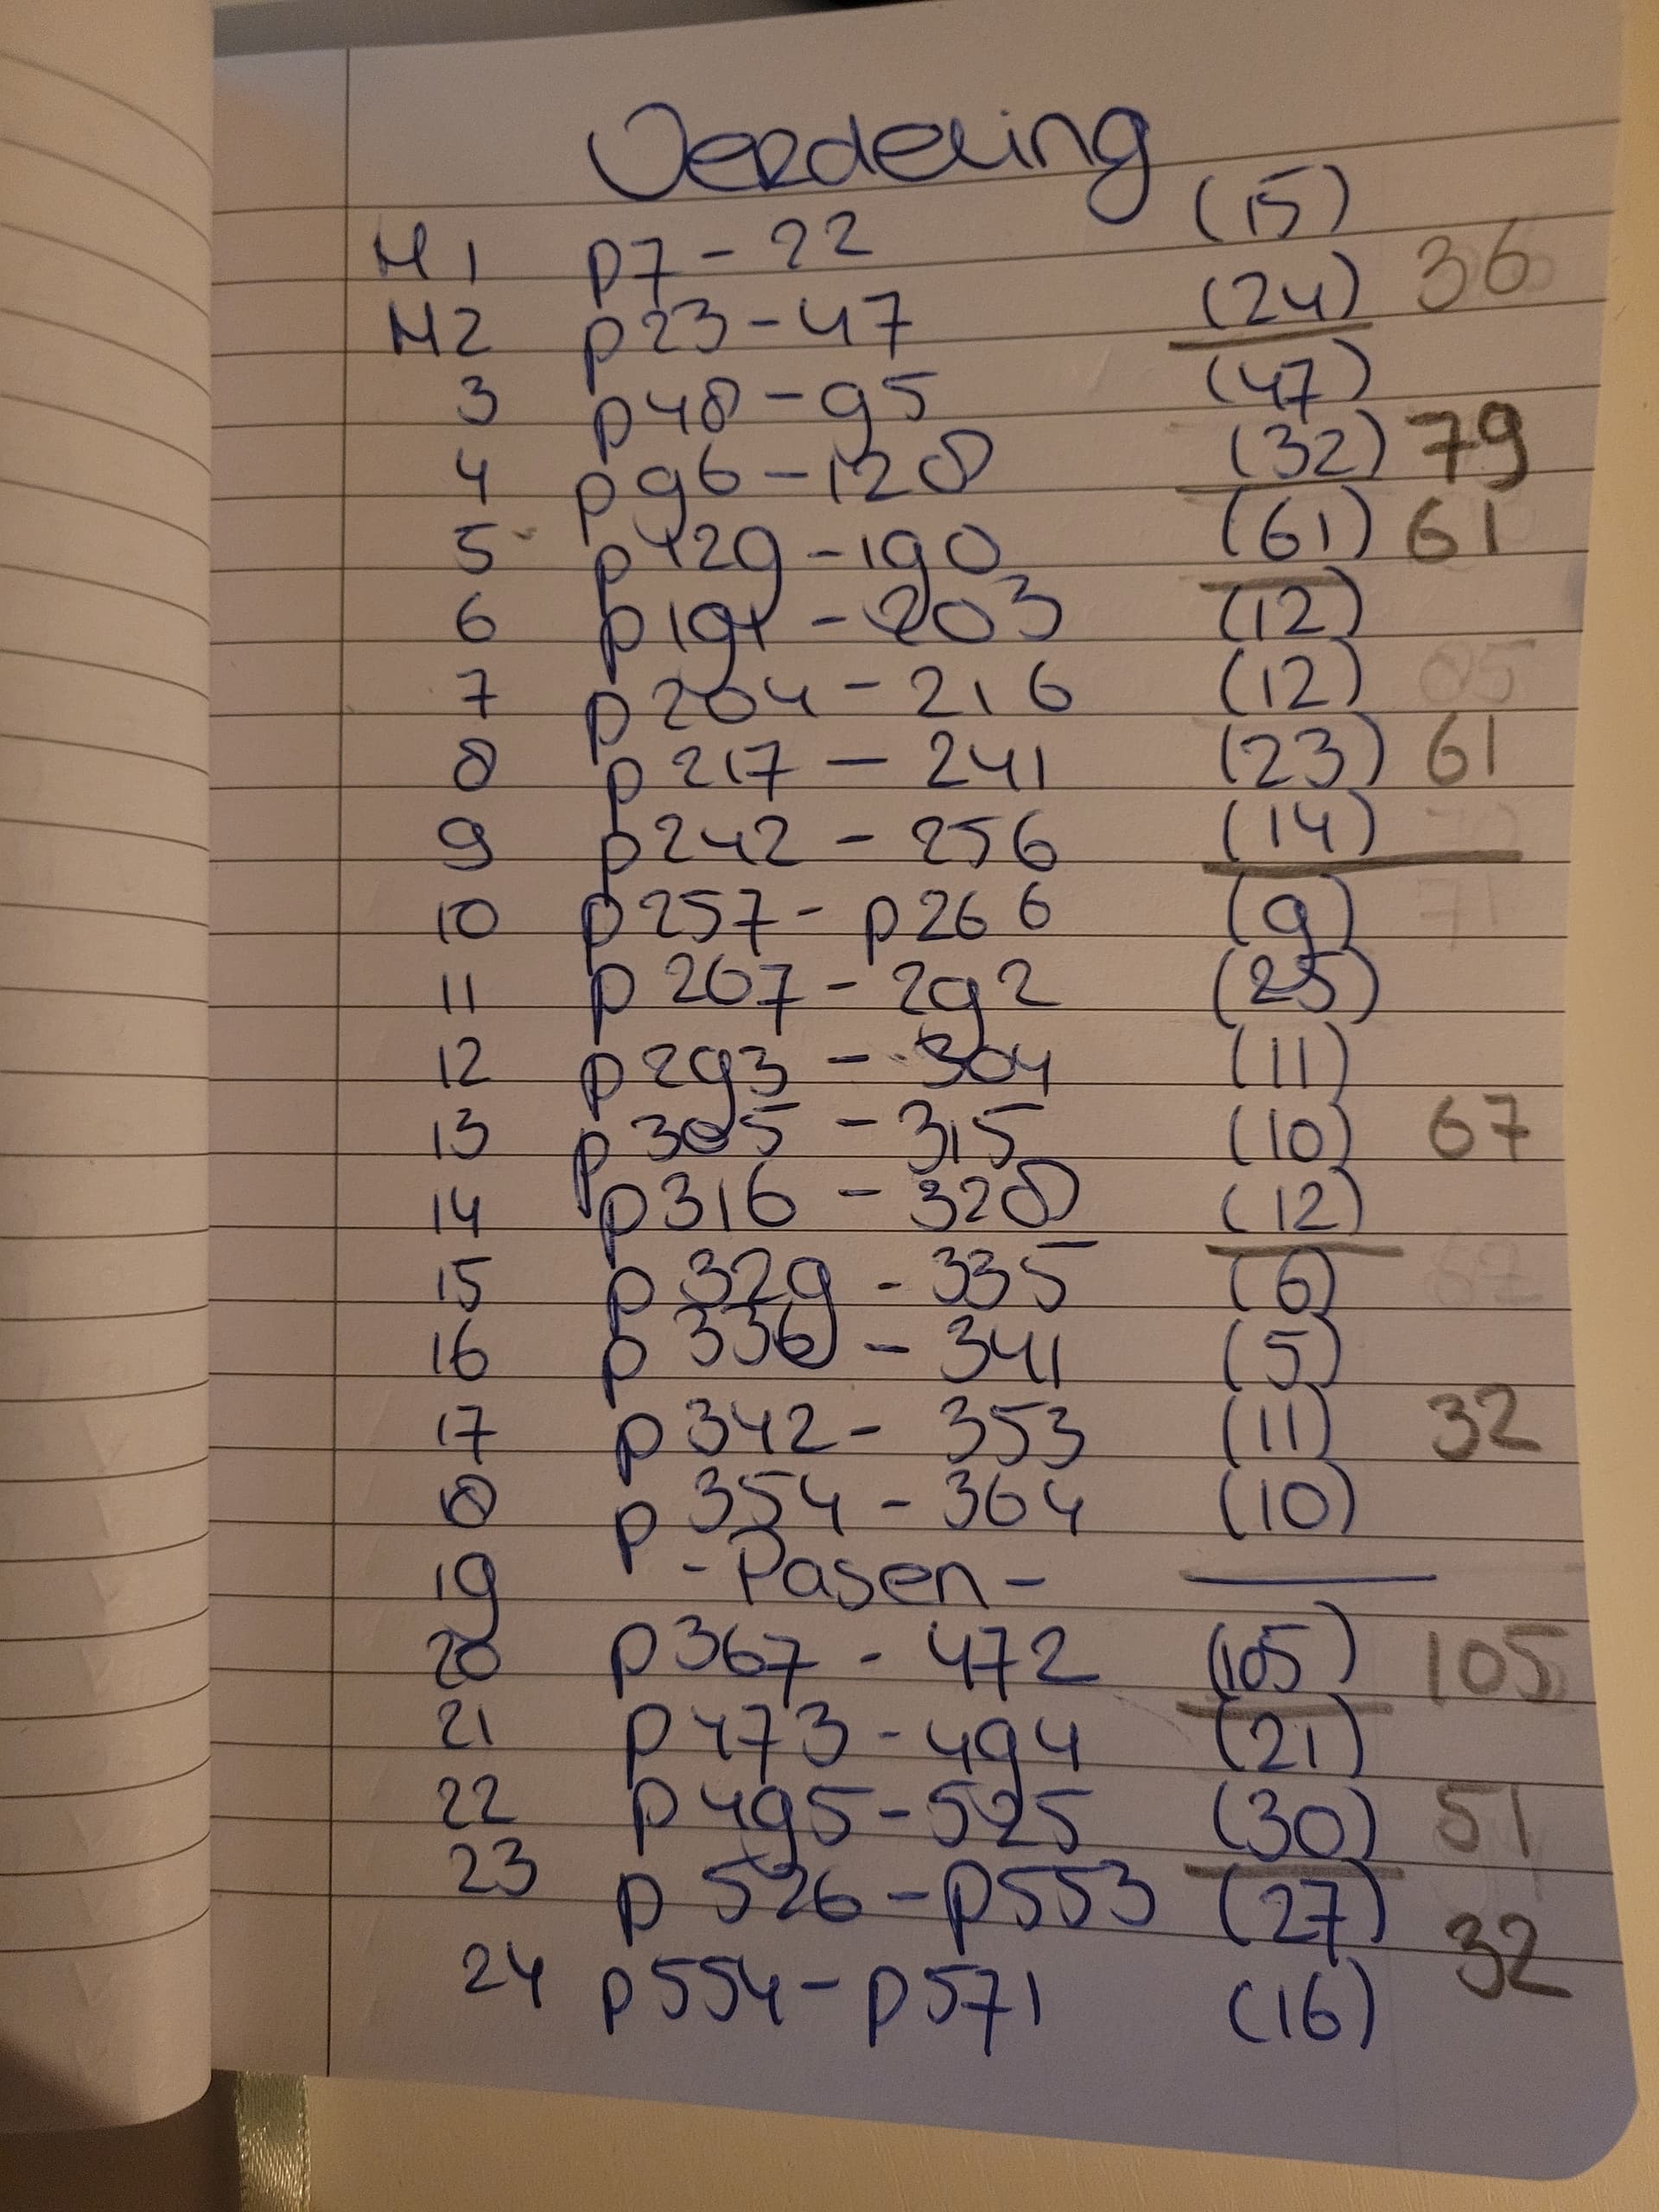 Verdeling
H1 p7 - 22 (15)
H2 p23 - 47 (24) 36
3 p48 - 95 (47)
4 p96 - 128 (32) 79
5 p129 - 190 (61) 61
6 p191 - 203 (12)
7 p204 - 216 (12)
8 p217 - 241 (23) 61
9 p242 - 256 (14)
10 p257 - p266 (9)
11 p267 - 292 (25)
12 p293 - 304 (11)
13 p305 - 315 (10) 67
14 p316 - 328 (12)
15 p329 - 335 (6)
16 p336 - 341 (5)
17 p342 - 353 (11) 32
18 p354 - 364 (10)
19 - Pasen -
20 p367 - 472 (105) 105
21 p473 - 494 (21)
22 p495 - 525 (30) 51
23 p526 - p553 (27)
24 p554 - p571 (16) 32